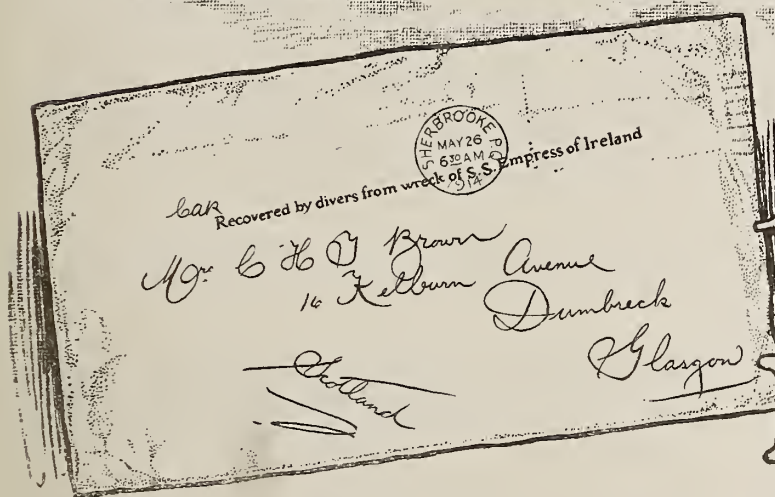 SHERBROOKE P.Q.
MAY 26
6 30 AM
1914
Recovered by divers from wreck of S.S. Empress of Ireland
Mrs C H Brown
Kelburn Avenue
Dumbreck
Glasgow
Scotland